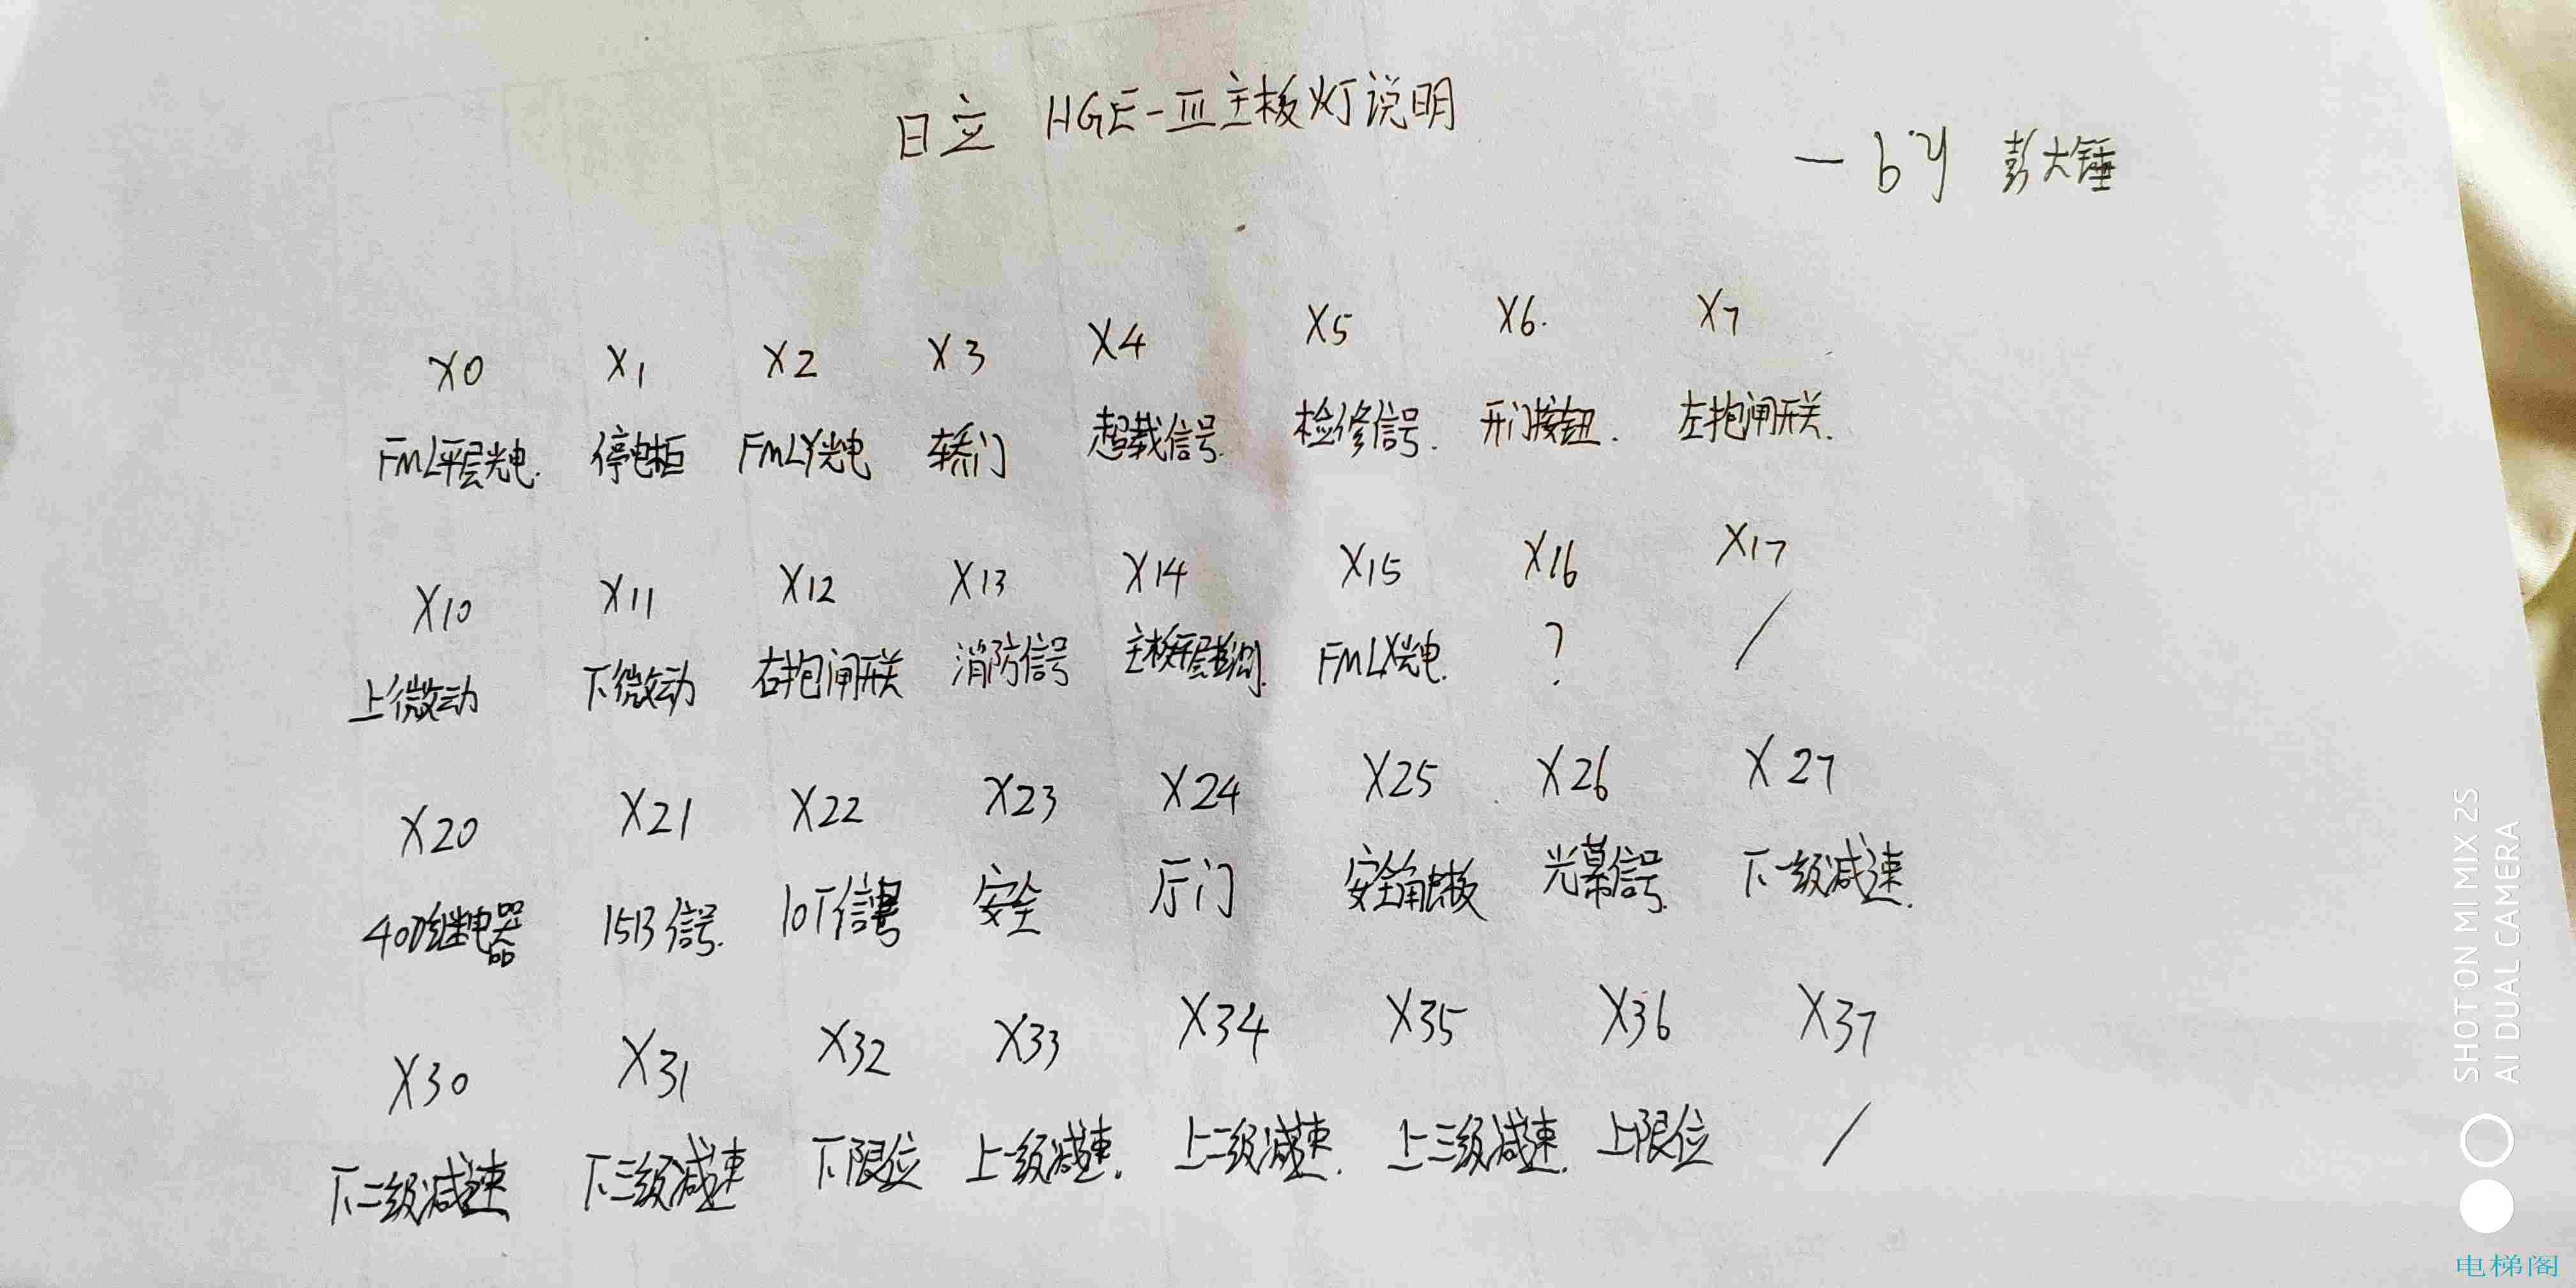 日立 HGE-III主板灯说明
— by 彭大锤
X0 X1 X2 X3 X4 X5 X6. X7
FML平层光电. 停电柜 FMLY光电 轿门 超载信号. 检修信号. 开门按钮. 左抱闸开关.
X10 X11 X12 X13 X14 X15 X16 X17
上微动 下微动 右抱闸开关 消防信号 主板平层检测. FMLX光电. ? /
X20 X21 X22 X23 X24 X25 X26 X27
40D继电器 15B信号. 10T信号 安全 厅门 安全触板 光幕信号. 下一级减速.
X30 X31 X32 X33 X34 X35 X36 X37
下二级减速 下三级减速 下限位 上一级减速. 上二级减速. 上三级减速. 上限位 /
SHOT ON MI MIX 2S
AI DUAL CAMERA
电梯阁